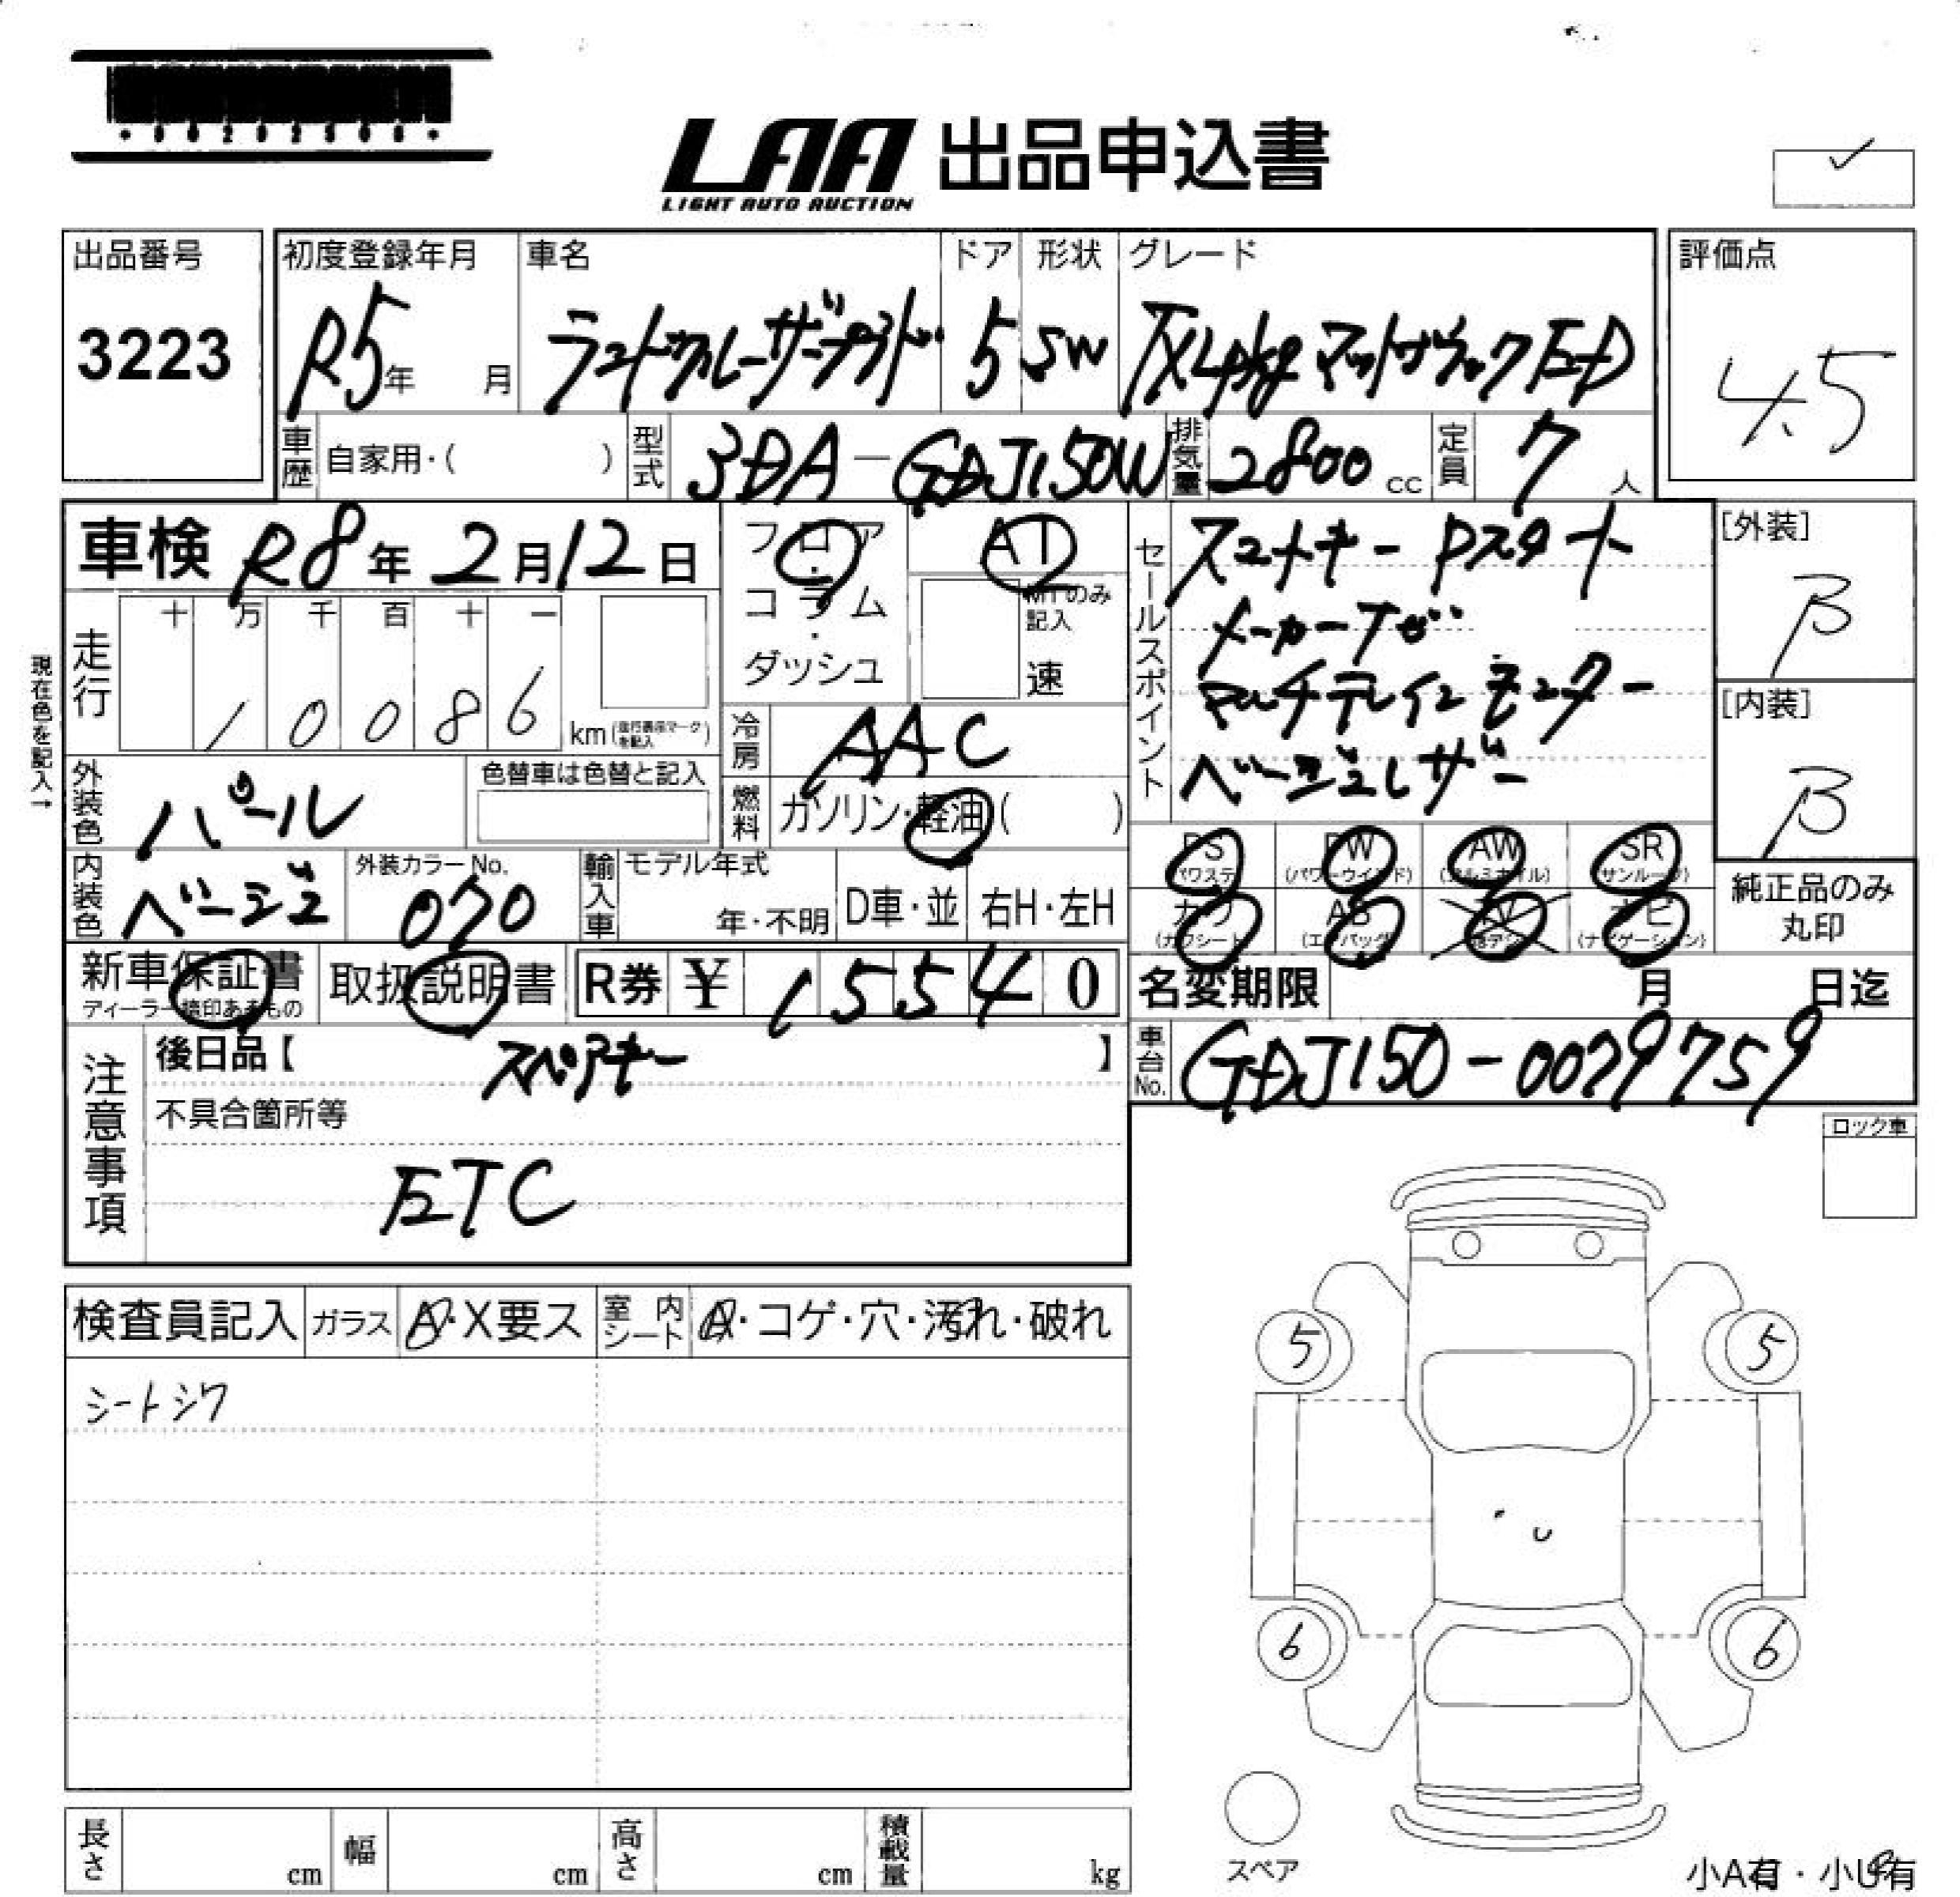 LAA 出品申込書
LIGHT AUTO AUCTION
出品番号
3223
初度登録年月
R5年 月
車名
ランドクルーザープラド
ドア
5
形状
SW
グレード
TXLpkg マットブラックED
評価点
4.5
車歴 自家用・( )
型式 3DA-GDJ150W
排気量 2800 cc
定員 7 人
車検 R8年 2月 12日
フロア・コラム・ダッシュ
AT
MTのみ記入
速
セールスポイント
スマートキー Pスタート
メーカーナビ
マルチテレインモニター
ベージュレザー
[外装]
B
[内装]
B
現在色を記入→
走行
十 万 千 百 十 一
1 0 0 8 6
km (走行表示マークを記入)
冷房 AAC
外装色 パール
色替車は色替と記入
燃料 ガソリン・軽油( )
PS PW AW SR
(パワステ) (パワーウインド) (アルミホイル) (サンルーフ)
カワ AB TV ナビ
(カワシート) (エアバッグ) (地デジ) (ナビゲーション)
純正品のみ
丸印
内装色 ベージュ
外装カラーNo.
070
輸入車 モデル年式
年・不明
D車・並 右H・左H
新車保証書
ディーラー捺印あるもの
取扱説明書
R券 ¥ 15540
名変期限 月 日迄
注意事項
後日品【 スペアキー 】
車台No. GDJ150-0079759
不具合箇所等
ETC
ロック車
検査員記入 ガラス A・X要ス 室内シート A・コゲ・穴・汚れ・破れ
シートシワ
5 5
6 6
スペア
長さ cm 幅 cm 高さ cm 積載量 kg
小A有・小U有